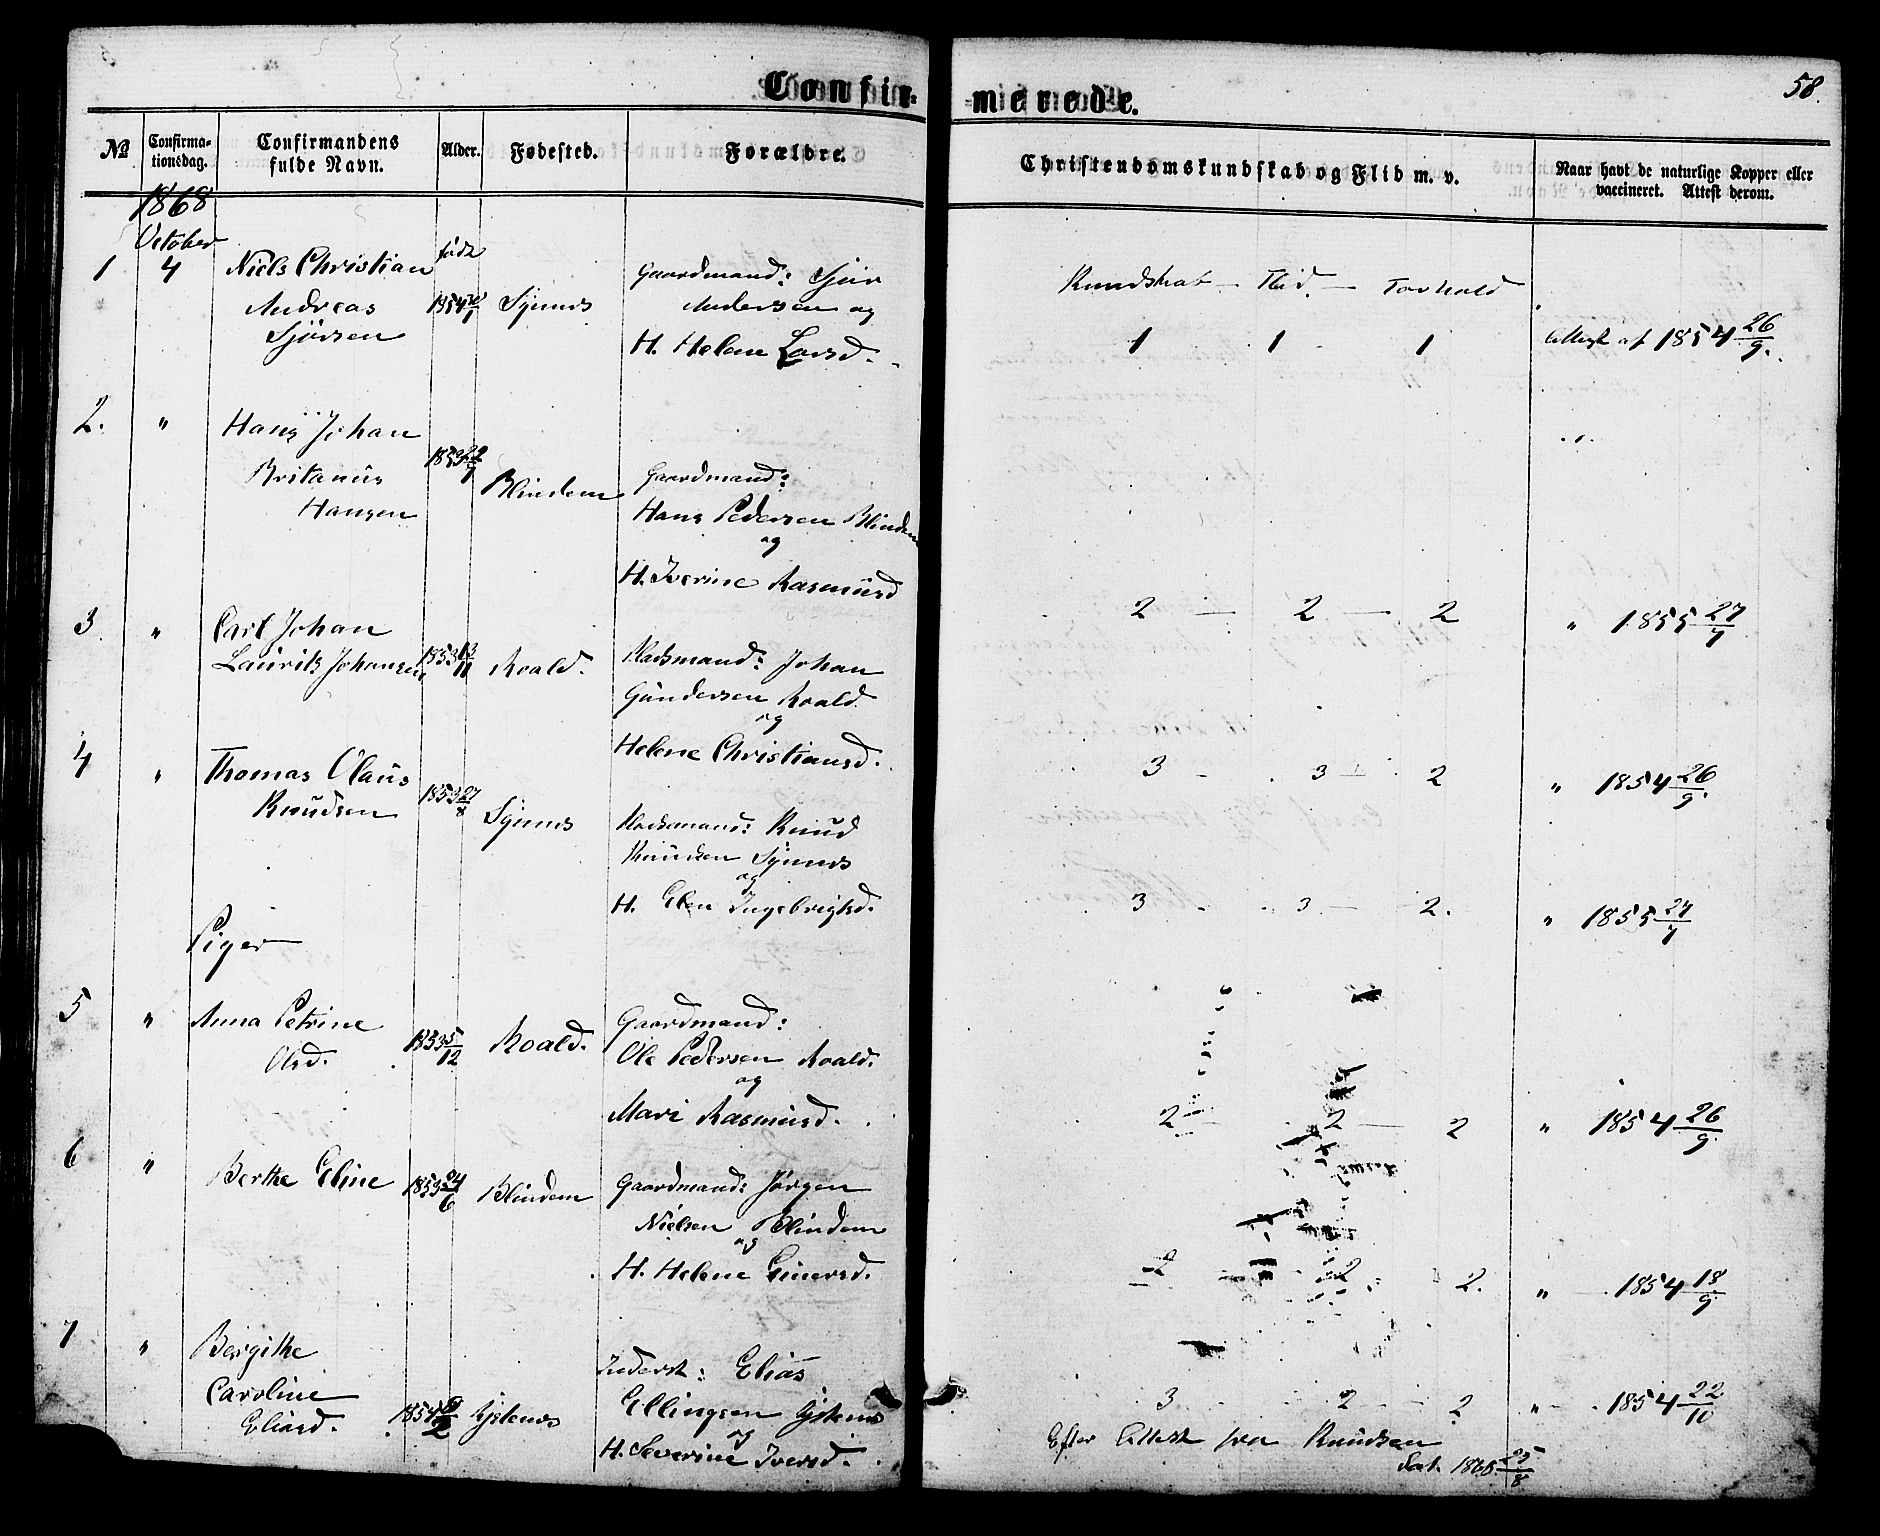 Confir-
merede.
58.
№
Confirma-
tionsdag.
Confirmandens
fulde Navn.
Alder.
Fødested.
Forældre.
Christendomskundskab og Flid m. v.
Naar havt de naturlige Kopper eller
vaccineret. Attest derom.
1868
October
1 4 Niels Christian
Andreas
Sjørsen
født
1854 1
Synnes
Gaardmand: Sjur
Andersen og
H. Helene Larsd.
Kundskab — Flid — Forhold
1 1 1
Attest af 1854 26/9.
2. "
Hans Johan
Britanus
Hansen
1853
Blindem
Gaardmand:
Hans Pedersen Blindem
og
H. Iverine Rasmusd
2 — 2 — 2
" 1855 27/7
3. "
Carl Johan
Laurits Johansen
1853 13/11
Roald.
Pladsmand: Johan
Gundersen Roald.
og
Helene Christiansd.
3 - 3 - 2
" 1854 26/9.
4 "
Thomas Olaus
Knudsen
1853 27/8
Synnes
Pladsmand: Knud
Knudsen Synnes
og
H. Elen Ingebrigtsd.
3 - 3 — 2.
" 1855 27/7
Piger
5 "
Anna Petrine
Olsd.
1853 5/12
Roald.
Gaardmand:
Ole Pedersen Roald.
og
Mari Rasmusd.
2 2 — 2
" 1854 26/9.
6 "
Berthe Eline
1853 24/6
Blindem
Gaardmand: Jørgen
Nielsen Blindem
og
H. Helene Einersd.
2 2 2.
" 1854 18/9.
7 "
Bergithe
Caroline
Eliasd.
1854
Gjøsnes
Inderst: Elias
Ellingsen
og
H. Severine Iversd.
3 2 - 2
" 1854 22/10
Efter Attest fra Knudsen
Dat. 1868 25/8